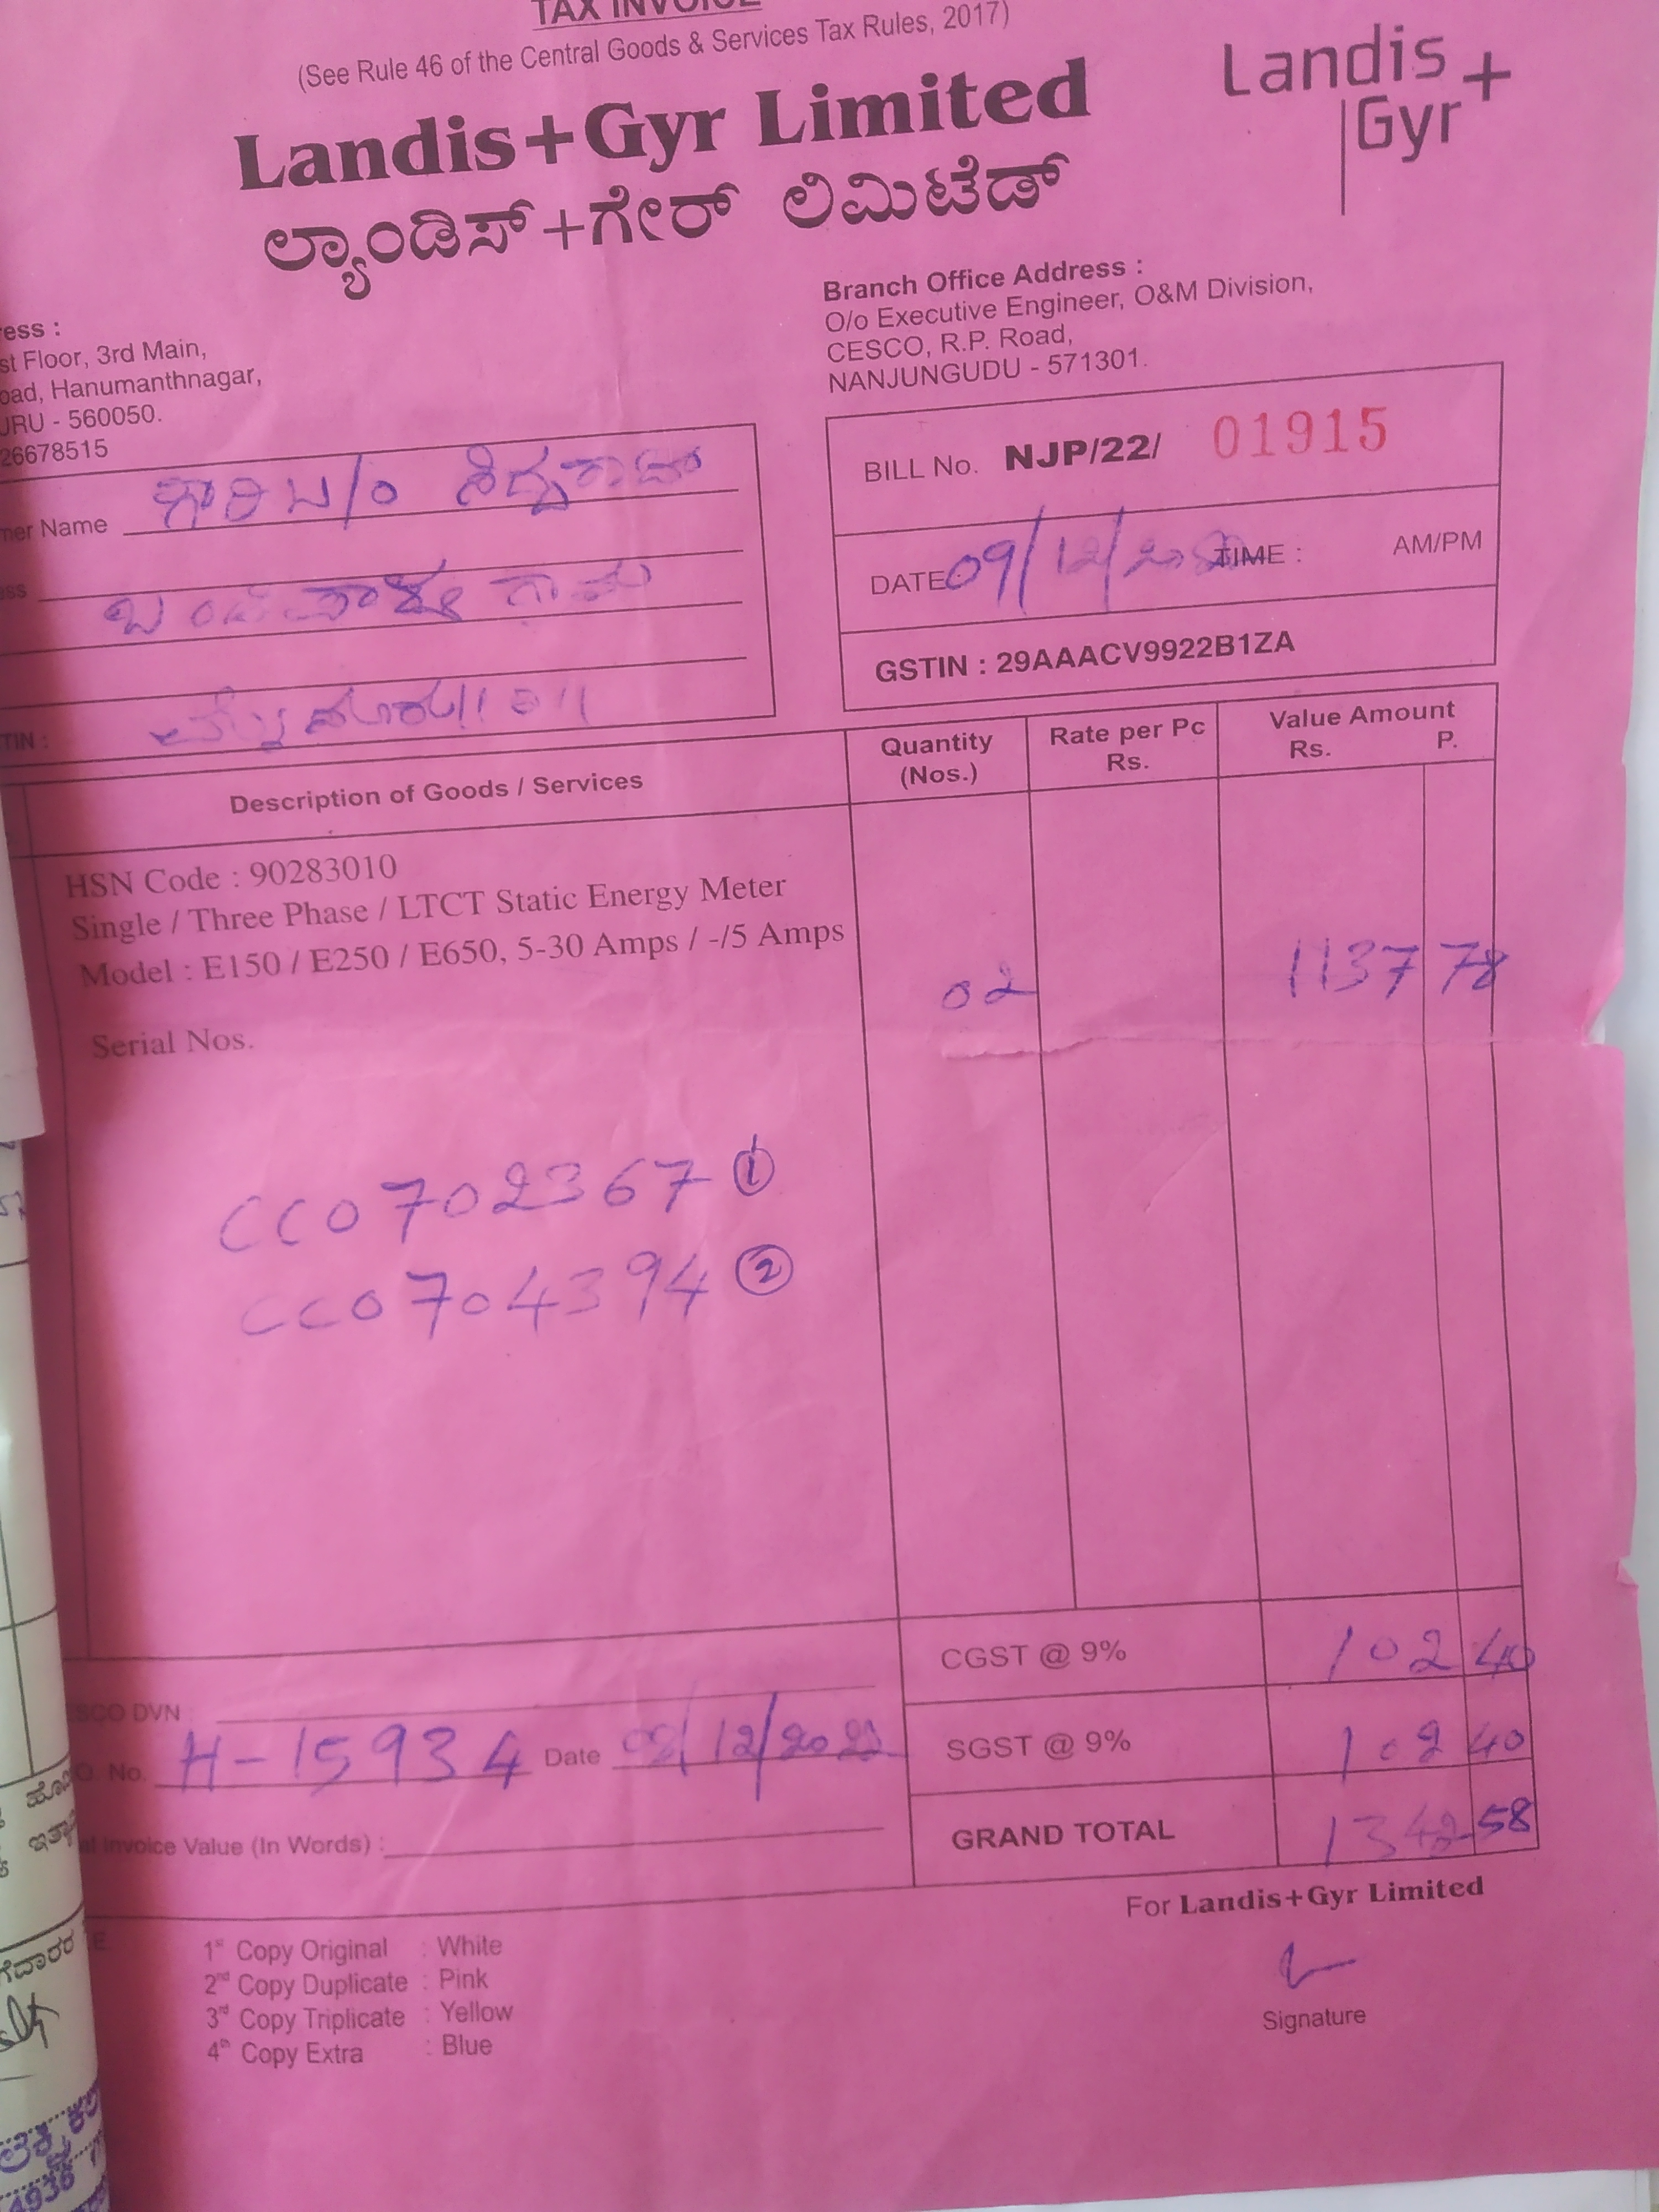 TAX INVOICE
(See Rule 46 of the Central Goods & Services Tax Rules, 2017)
Landis+Gyr Limited
ಲ್ಯಾಂಡಿಸ್+ಗೇರ್ ಲಿಮಿಟೆಡ್
Landis
Gyr+
ress :
st Floor, 3rd Main,
oad, Hanumanthnagar,
URU - 560050.
26678515
Branch Office Address :
O/o Executive Engineer, O&M Division,
CESCO, R.P. Road,
NANJUNGUDU - 571301.
mer Name
ess
TIN :
BILL No. NJP/22/ 01915
DATE: 09/12/ TIME : AM/PM
GSTIN : 29AAACV9922B1ZA
Description of Goods / Services
Quantity (Nos.)
Rate per Pc Rs.
Value Amount Rs. P.
HSN Code : 90283010
Single / Three Phase / LTCT Static Energy Meter
Model : E150 / E250 / E650, 5-30 Amps / -/5 Amps
02 1137 78
Serial Nos.
CC0702367 1
CC0704394 2
CGST @ 9% 102 40
SCO DVN
No. H-15934 Date 09/12/2022
SGST @ 9% 102 40
Invoice Value (In Words) :
GRAND TOTAL 1342 58
For Landis+Gyr Limited
Signature
1st Copy Original : White
2nd Copy Duplicate : Pink
3rd Copy Triplicate : Yellow
4th Copy Extra : Blue